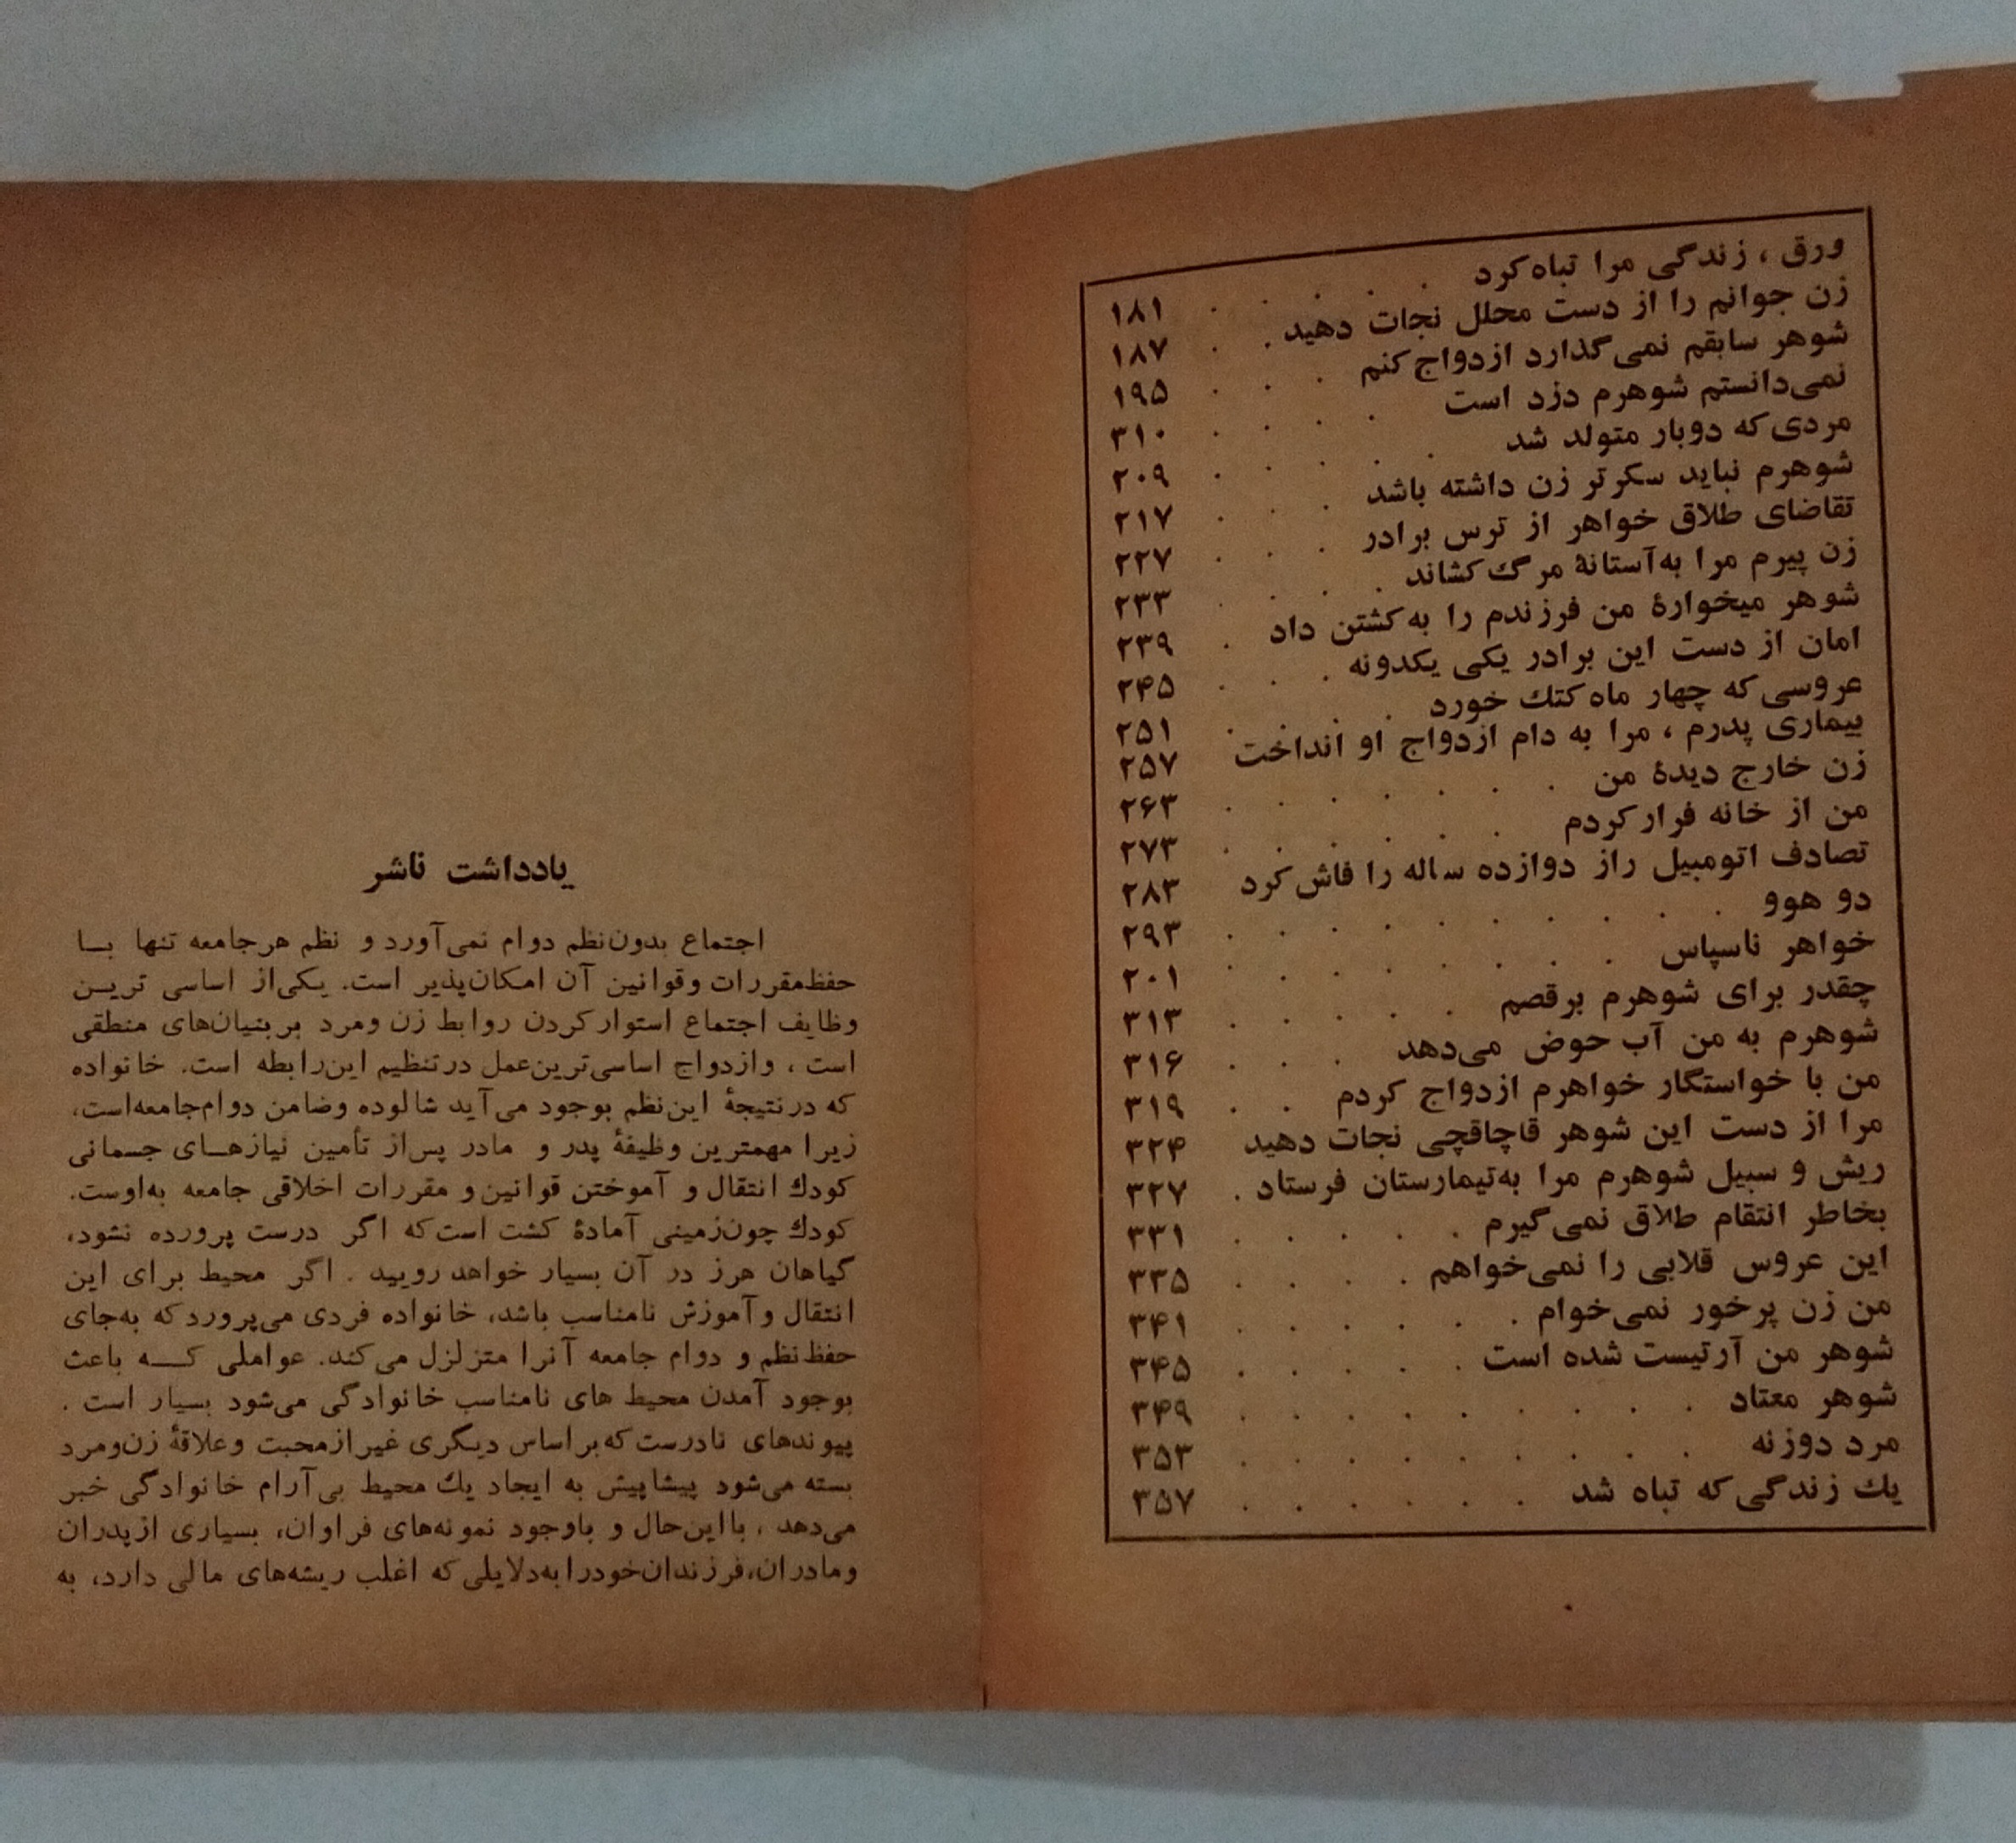 ورق ، زندگی مرا تباه‌کرد . . . . . ۱۸۱
زن جوانم را از دست محلل نجات دهید . . ۱۸۷
شوهر سابقم نمی‌گذارد ازدواج‌کنم . . . ۱۹۵
نمی‌دانستم شوهرم دزد است . . . . ۳۱۰
مردی‌که دوبار متولد شد . . . . . ۲۰۹
شوهرم نباید سکرتر زن داشته باشد . . . ۲۱۷
تقاضای طلاق خواهر از ترس برادر . . . ۲۲۷
زن پیرم مرا به‌آستانهٔ مرگ‌کشاند . . . . ۲۳۳
شوهر میخوارهٔ من فرزندم را به‌کشتن داد . ۲۳۹
امان از دست این برادر یکی یکدونه . . . ۲۴۵
عروسی‌که چهار ماه‌کتك خورد . . . . ۲۵۱
بیماری پدرم ، مرا به دام ازدواج او انداخت ۲۵۷
زن خارج دیدهٔ من . . . . . . . ۲۶۳
من از خانه فرارکردم . . . . . . ۲۷۳
تصادف اتومبیل راز دوازده ساله را فاش‌کرد ۲۸۳
دو هوو . . . . . . . . . . ۲۹۳
خواهر ناسپاس . . . . . . . . ۲۰۱
چقدر برای شوهرم برقصم . . . . . ۳۱۳
شوهرم به من آب حوض می‌دهد . . . ۳۱۶
من با خواستگار خواهرم ازدواج کردم . . ۳۱۹
مرا از دست این شوهر قاچاقچی نجات دهید ۳۲۴
ریش و سبیل شوهرم مرا به‌تیمارستان فرستاد . ۳۲۷
بخاطر انتقام طلاق نمی‌گیرم . . . . . ۳۳۱
این عروس قلابی را نمی‌خواهم . . . . ۳۳۵
من زن پرخور نمی‌خوام . . . . . . ۳۴۱
شوهر من آرتیست شده است . . . . . ۳۴۵
شوهر معتاد . . . . . . . . . ۳۴۹
مرد دوزنه . . . . . . . . . ۳۵۳
یك زندگی‌که تباه شد . . . . . . ۳۵۷
یادداشت ناشر
اجتماع بدون‌نظم دوام نمی‌آورد و نظم هرجامعه تنها بـا
حفظ‌مقررات وقوانین آن امکان‌پذیر است. یکی‌از اساسی تریـن
وظایف اجتماع استوارکردن روابط زن ومرد بربنیان‌های منطقی
است ، وازدواج اساسی‌ترین‌عمل درتنظیم این‌رابطه است. خانواده
که درنتیجهٔ این‌نظم بوجود می‌آید شالوده وضامن دوام‌جامعه‌است،
زیرا مهمترین وظیفهٔ پدر و مادر پس‌از تأمین نیازهـای جسمانی
کودك انتقال و آموختن قوانین و مقررات اخلاقی جامعه به‌اوست.
کودك چون‌زمینی آمادهٔ کشت است‌که اگر درست پرورده نشود،
گیاهان هرز در آن بسیار خواهد رویید . اگر محیط برای این
انتقال وآموزش نامناسب باشد، خانواده فردی می‌پروردکه به‌جای
حفظ‌نظم و دوام جامعه آنرا متزلزل می‌کند. عواملی کـه باعث
بوجود آمدن محیط های نامناسب خانوادگی می‌شود بسیار است .
پیوندهای نادرست‌که‌براساس دیگری غیرازمحبت وعلاقهٔ زن‌ومرد
بسته می‌شود پیشاپیش به ایجاد یك محیط بی‌آرام خانوادگی خبر
می‌دهد ، بااین‌حال و باوجود نمونه‌های فراوان، بسیاری ازپدران
ومادران،فرزندان‌خودرابه‌دلایلی‌که اغلب ریشه‌های مالی دارد، به